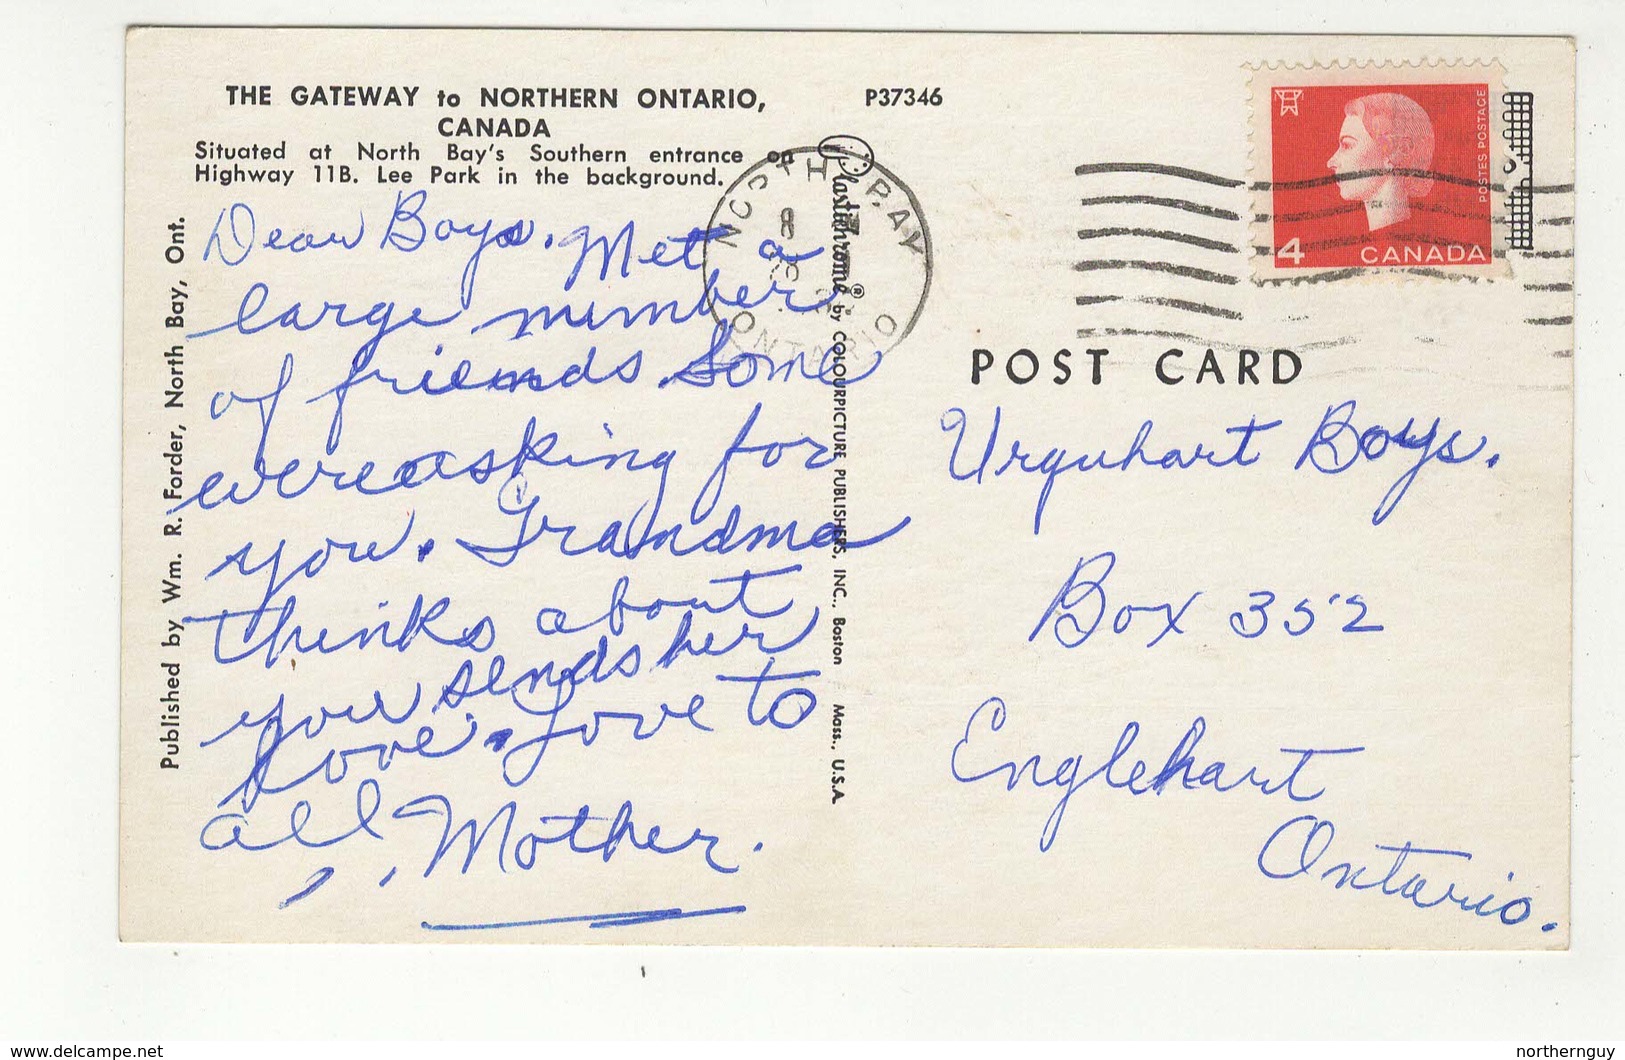 THE GATEWAY to NORTHERN ONTARIO,
CANADA
Situated at North Bay's Southern entrance on
Highway 11B. Lee Park in the background.
P37346
Published by Wm. R. Forder, North Bay, Ont.
Dear Boys. Met a
large number
of friends. Some
were asking for
you. Grandma
thinks about
you sends her
love. Love to
all, Mother.
Plastichrome® by COLOURPICTURE PUBLISHERS, INC., Boston Mass., U.S.A.
NORTH BAY
8
ONTARIO
POSTES POSTAGE
4 CANADA
POST CARD
Urquhart Boys.
Box 352
Englehart
Ontario.
www.delcampe.net
northernguy